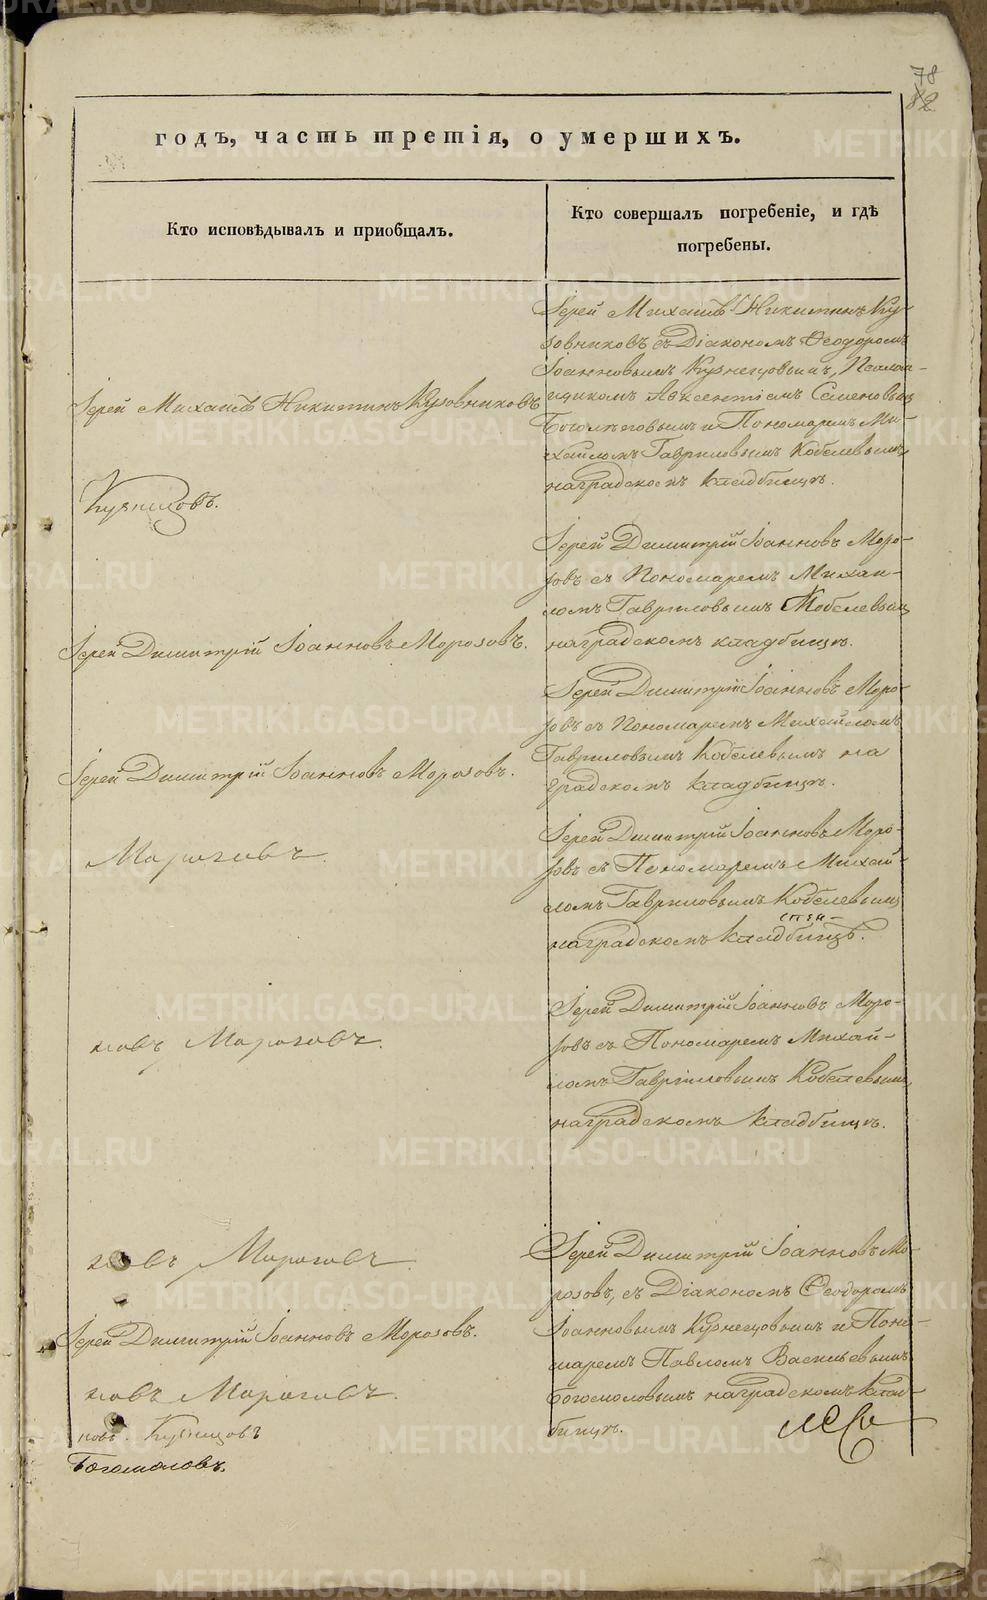 78
82
годъ, часть третія, о умершихъ.
Кто исповѣдывалъ и приобщалъ.
Кто совершалъ погребеніе, и гдѣ
погребены.
Іерей Михаилъ Никитинъ Ку-
зовниковъ съ Діакономъ Ѳеодоромъ
Іоанновымъ Кузнецовымъ, Псалом-
щикомъ Авксентіемъ Семеновымъ
Боголѣповымъ и Пономаремъ Ми-
хаиломъ Гавриловымъ Кобелевымъ,
на градскомъ кладбищѣ.
Іерей Михаилъ Никитинъ Кузовниковъ
Кузнецовъ.
Іерей Димитрій Іоанновъ Моро-
зовъ съ Пономаремъ Михаи-
ломъ Гавриловымъ Кобелевымъ
на градскомъ кладбищѣ.
Іерей Димитрій Іоанновъ Морозовъ.
Іерей Димитрій Іоанновъ Моро-
зовъ съ Пономаремъ Михайломъ
Гавриловымъ Кобелевымъ на
градскомъ кладбищѣ.
Іерей Димитрій Іоанновъ Морозовъ.
Іерей Димитрій Іоанновъ Моро-
зовъ съ Пономаремъ Михай-
ломъ Гавриловымъ Кобелевымъ
на градскомъ кладбищѣ.
Морозовъ.
Іерей Димитрій Іоанновъ Моро-
зовъ съ Пономаремъ Михай-
ломъ Гавриловымъ Кобелевымъ
на градскомъ кладбищѣ.
новъ Морозовъ.
Іерей Димитрій Іоанновъ Мо-
розовъ, съ Діакономъ Ѳеодоромъ
Іоанновымъ Кузнецовымъ и Поно-
маремъ Павломъ Васильевымъ
Богомоловымъ на градскомъ клад-
бищѣ.
новъ Морозовъ.
Іерей Димитрій Іоанновъ Морозовъ.
новъ Морозовъ.
новъ. Кузнецовъ
Богомоловъ.
METRIKI.GASO-URAL.RU